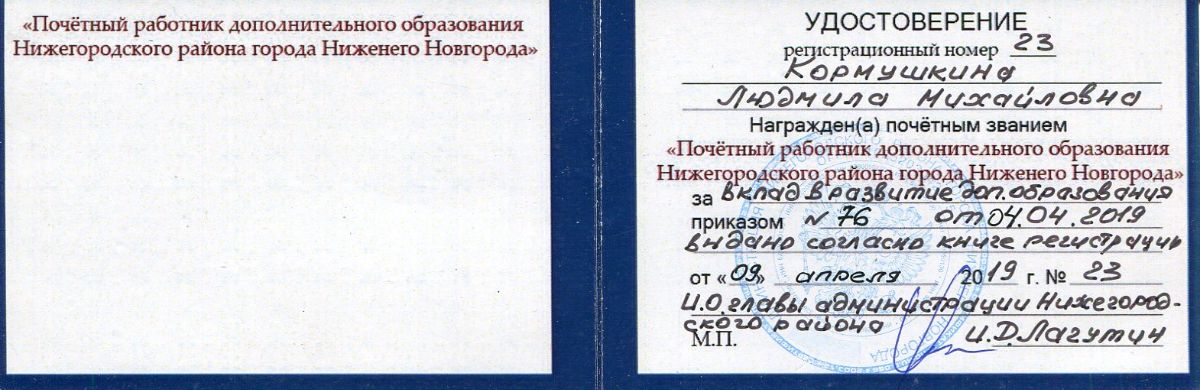 «Почётный работник дополнительного образования
Нижегородского района города Ниженего Новгорода»
УДОСТОВЕРЕНИЕ
регистрационный номер 23
Кормушкина
Людмила Михайловна
Награжден(а) почётным званием
«Почётный работник дополнительного образования
Нижегородского района города Ниженего Новгорода»
за вклад в развитие доп. образования
приказом № 76 от 04.04.2019
выдано согласно книге регистрации
от «09» апреля 2019 г. № 23
И.О. главы администрации Нижегород-
ского района И.Д. Лагутин
М.П.